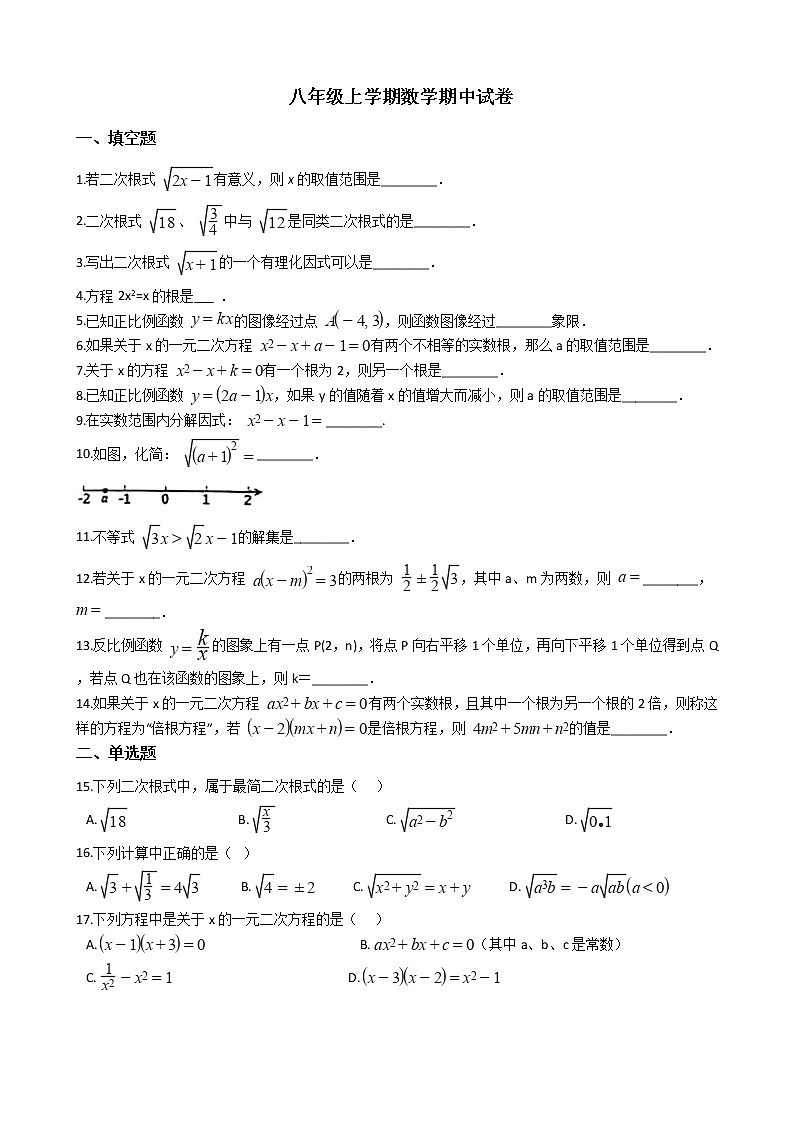 八年级上学期数学期中试卷
一、填空题
1.若二次根式 √(2x−1)有意义，则 x 的取值范围是________．
2.二次根式 √18 、 √(3/4) 中与 √12是同类二次根式的是________．
3.写出二次根式 √(x+1)的一个有理化因式可以是________．
4.方程 2x²=x 的根是___ ．
5.已知正比例函数 y=kx的图像经过点 A(−4,3)，则函数图像经过________象限．
6.如果关于 x 的一元二次方程 x²−x+a−1=0有两个不相等的实数根，那么 a 的取值范围是________．
7.关于 x 的方程 x²−x+k=0有一个根为 2，则另一个根是________．
8.已知正比例函数 y=(2a−1)x，如果 y 的值随着 x 的值增大而减小，则 a 的取值范围是________．
9.在实数范围内分解因式： x²−x−1=________.
10.如图，化简： √((a+1)²) =________．
-2 a -1 0 1 2
11.不等式 √3x>√2x−1的解集是________．
12.若关于 x 的一元二次方程 a(x−m)²=3的两根为 1/2±1/2√3，其中 a、m 为两数，则 a=________，
m=________．
13.反比例函数 y=k/x的图象上有一点 P(2，n)，将点 P 向右平移 1 个单位，再向下平移 1 个单位得到点 Q
，若点 Q 也在该函数的图象上，则 k＝________．
14.如果关于 x 的一元二次方程 ax²+bx+c=0有两个实数根，且其中一个根为另一个根的 2 倍，则称这
样的方程为“倍根方程”，若 (x−2)(mx+n)=0是倍根方程，则 4m²+5mn+n²的值是________．
二、单选题
15.下列二次根式中，属于最简二次根式的是（ ）
A.√18 B.√(x/3) C.√(a²−b²) D.√0.1
16.下列计算中正确的是（ ）
A.√3+√(1/3)=4√3 B.√4=±2 C.√(x²+y²)=x+y D.√(a³b)=−a√(ab)(a<0)
17.下列方程中是关于 x 的一元二次方程的是（ ）
A.(x−1)(x+3)=0 B. ax²+bx+c=0（其中 a、b、c 是常数）
C. 1/x²−x²=1 D.(x−3)(x−2)=x²−1